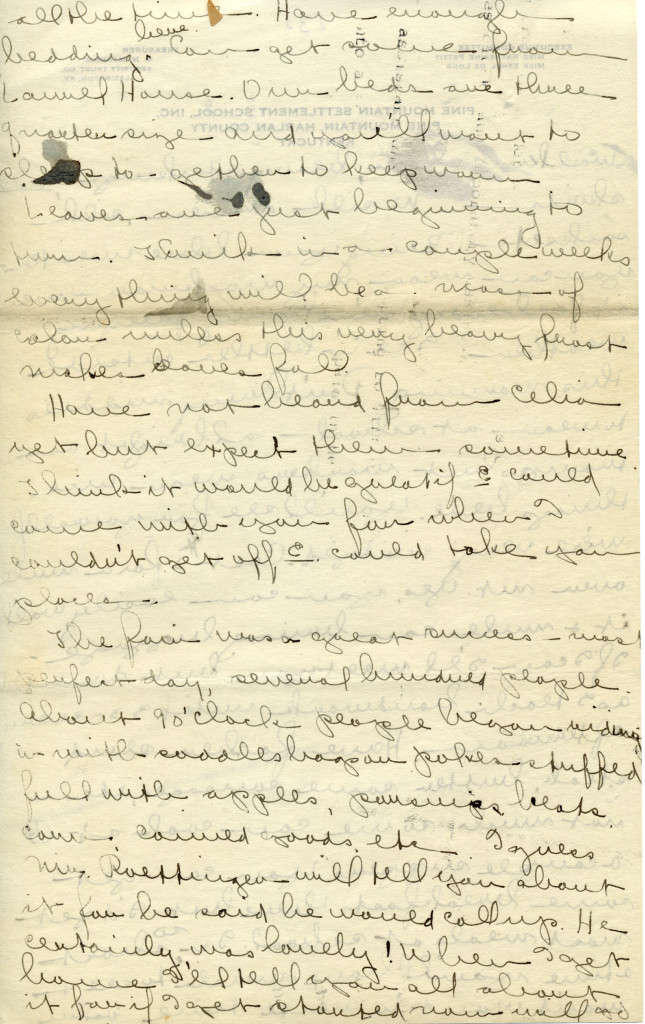 all the time. Have enough
bedding here. Can get some from
Laurel House. Our beds are three
quarter size and you'll want to
sleep to-gether to keep warm
Leaves are just beginning to
turn. Think in a couple weeks
every thing will be a mass of
color unless this very heavy frost
makes leaves fall.
Have not heard from Celia
yet but expect them sometime.
Think it would be great if C could
come with you for when I
couldn't get off, C. could take you
places.
The fair was a great success - most
perfect day, several hundred people.
About 9 o'clock people began riding
in with saddlebags on pokes stuffed
full with apples, parsnips, beats
corn, canned goods, etc. I guess
Mr. Roettinger will tell you about
it for he said he would call up. He
certainly was lovely! When I get
home I'll tell you all about
it for if I get started now will
PINE MOUNTAIN SETTLEMENT SCHOOL, INC.
PINE MOUNTAIN, HARLAN COUNTY
KENTUCKY